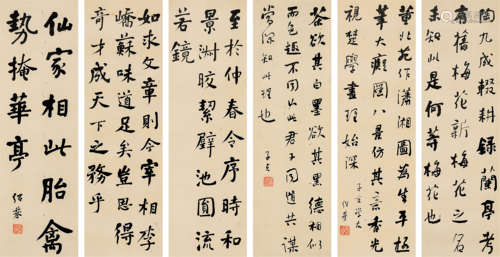 陶九成輟耕錄蘭亭考
有舊梅花新梅花之名
未知此是何等梅花也
董北苑作瀟湘圖為生平極
筆大 八景仿其 香光
視楚學畫理始深
茶欲其白墨欲其黑德相似
而色趣不同以此君子同道共謀
當深知此理也
至於仲春令序時和
景淑皎潔璧池圓流
若鏡
如求文章則今宰相李
嶠蘇味道足矣豈思得
奇才成天下之務乎
仙家相此胎禽
勢掩華亭